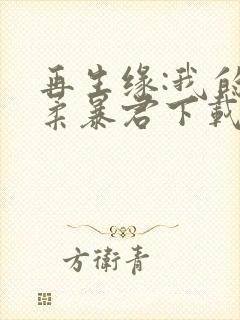 再生缘:我的
柔暴君下載
方衛青